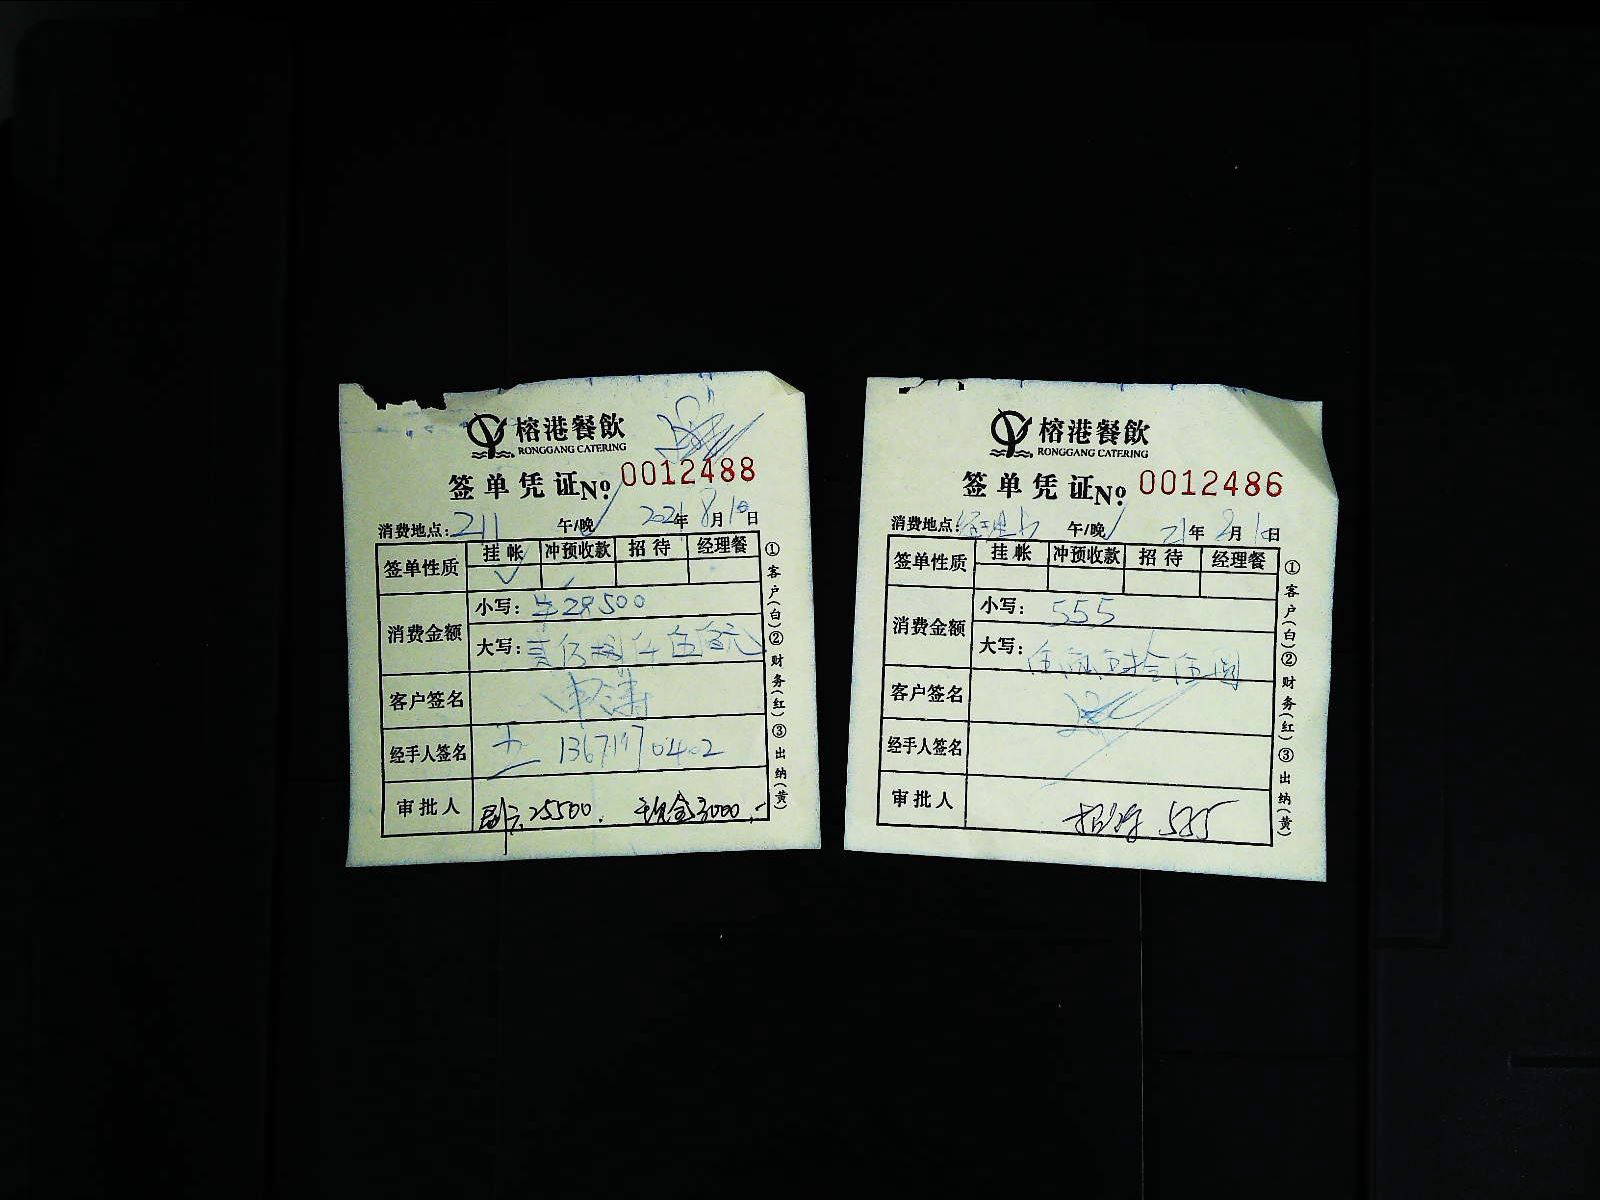 榕港餐飲
RONGGANG CATERING
签单凭证No. 0012488
消费地点: 211 午/晚 2021年8月10日
签单性质 挂帐 冲预收款 招待 经理餐
消费金额
小写: 28500
大写: 仟伍佰元
客户签名
经手人签名 王 13671970402
审批人 25500. 现金3000.-
①客户(白)②财务(红)③出纳(黄)
榕港餐飲
RONGGANG CATERING
签单凭证No. 0012486
消费地点: 经理 午/晚 21年8月10日
签单性质 挂帐 冲预收款 招待 经理餐
消费金额
小写: 555
大写: 伍佰伍拾伍圆
客户签名
经手人签名
审批人 招待 555
①客户(白)②财务(红)③出纳(黄)